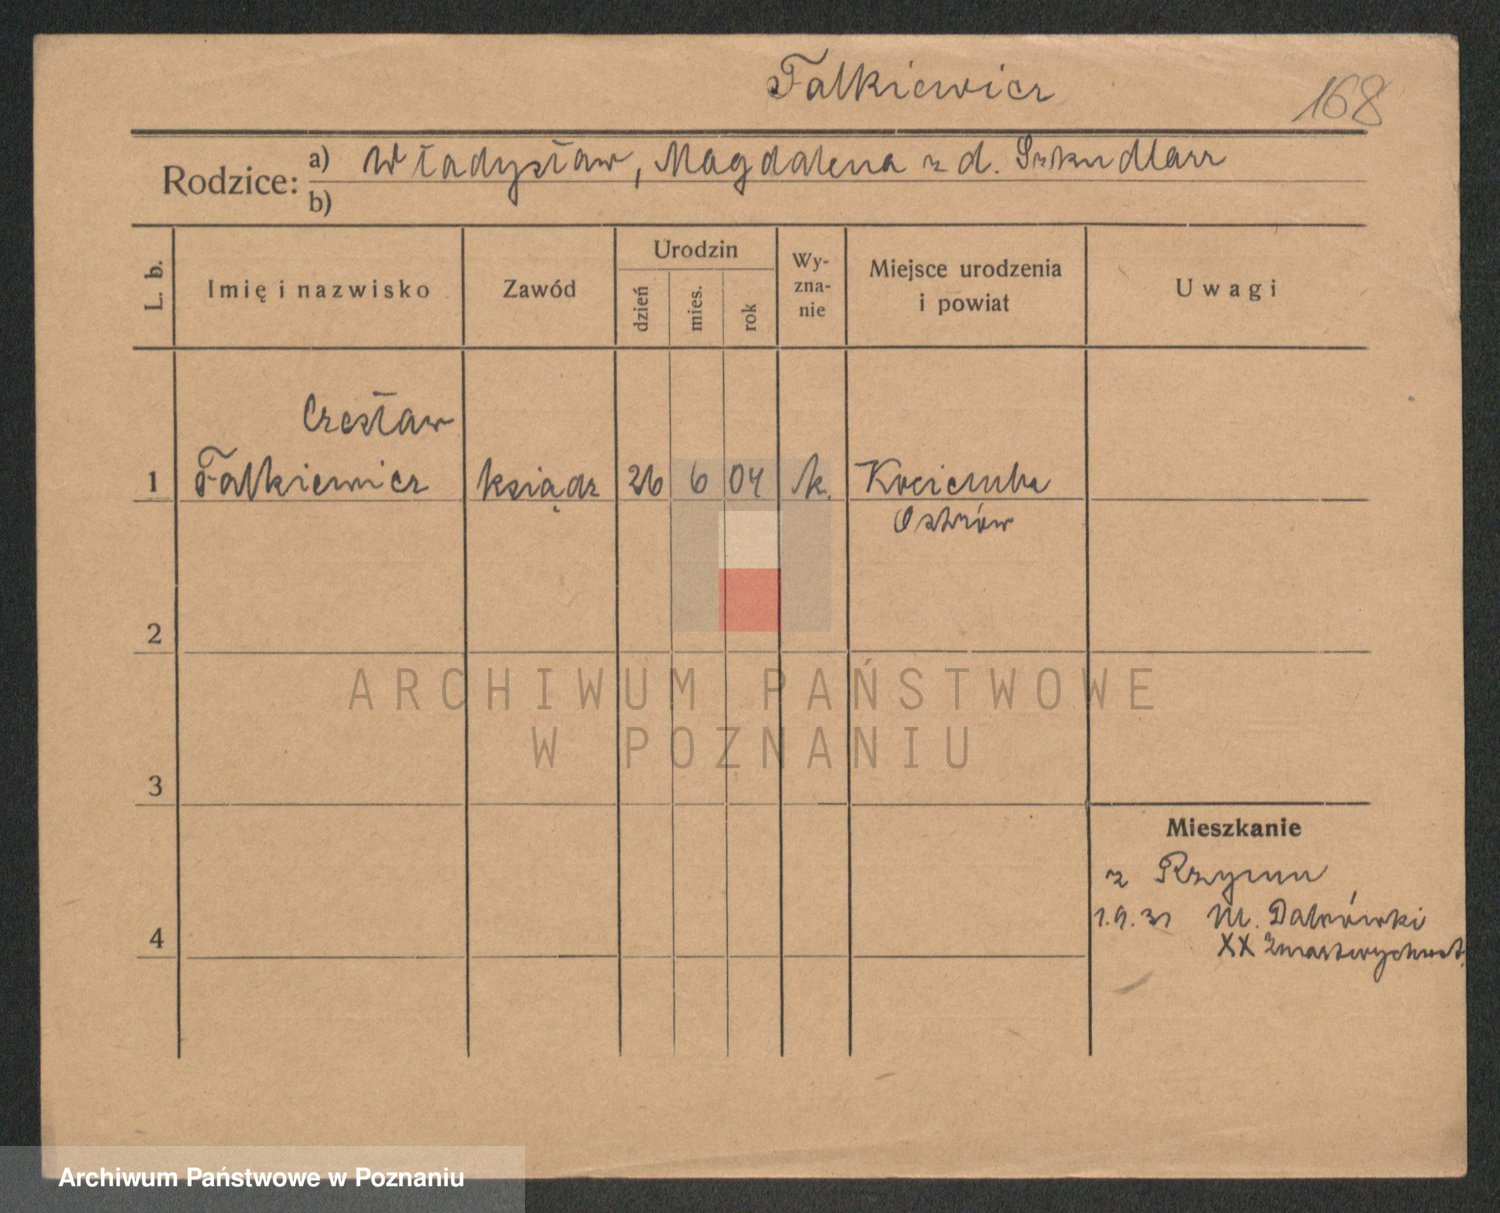 Falkiewicz
168
Rodzice: a) Władysław, Magdalena z d. Szkudlarz
b)
L. b.
Imię i nazwisko
Zawód
Urodzin
dzień
mies.
rok
Wy-
zna-
nie
Miejsce urodzenia
i powiat
Uwagi
Czesław
1 Falkiewicz ksiądz 26 6 04 k. Kociemba
Ostrów
2
ARCHIWUM PAŃSTWOWE
W POZNANIU
3
Mieszkanie
z Rzymu
1.9.31 M. Dabrówki
4
XX Zmartwychwst.
Archiwum Państwowe w Poznaniu